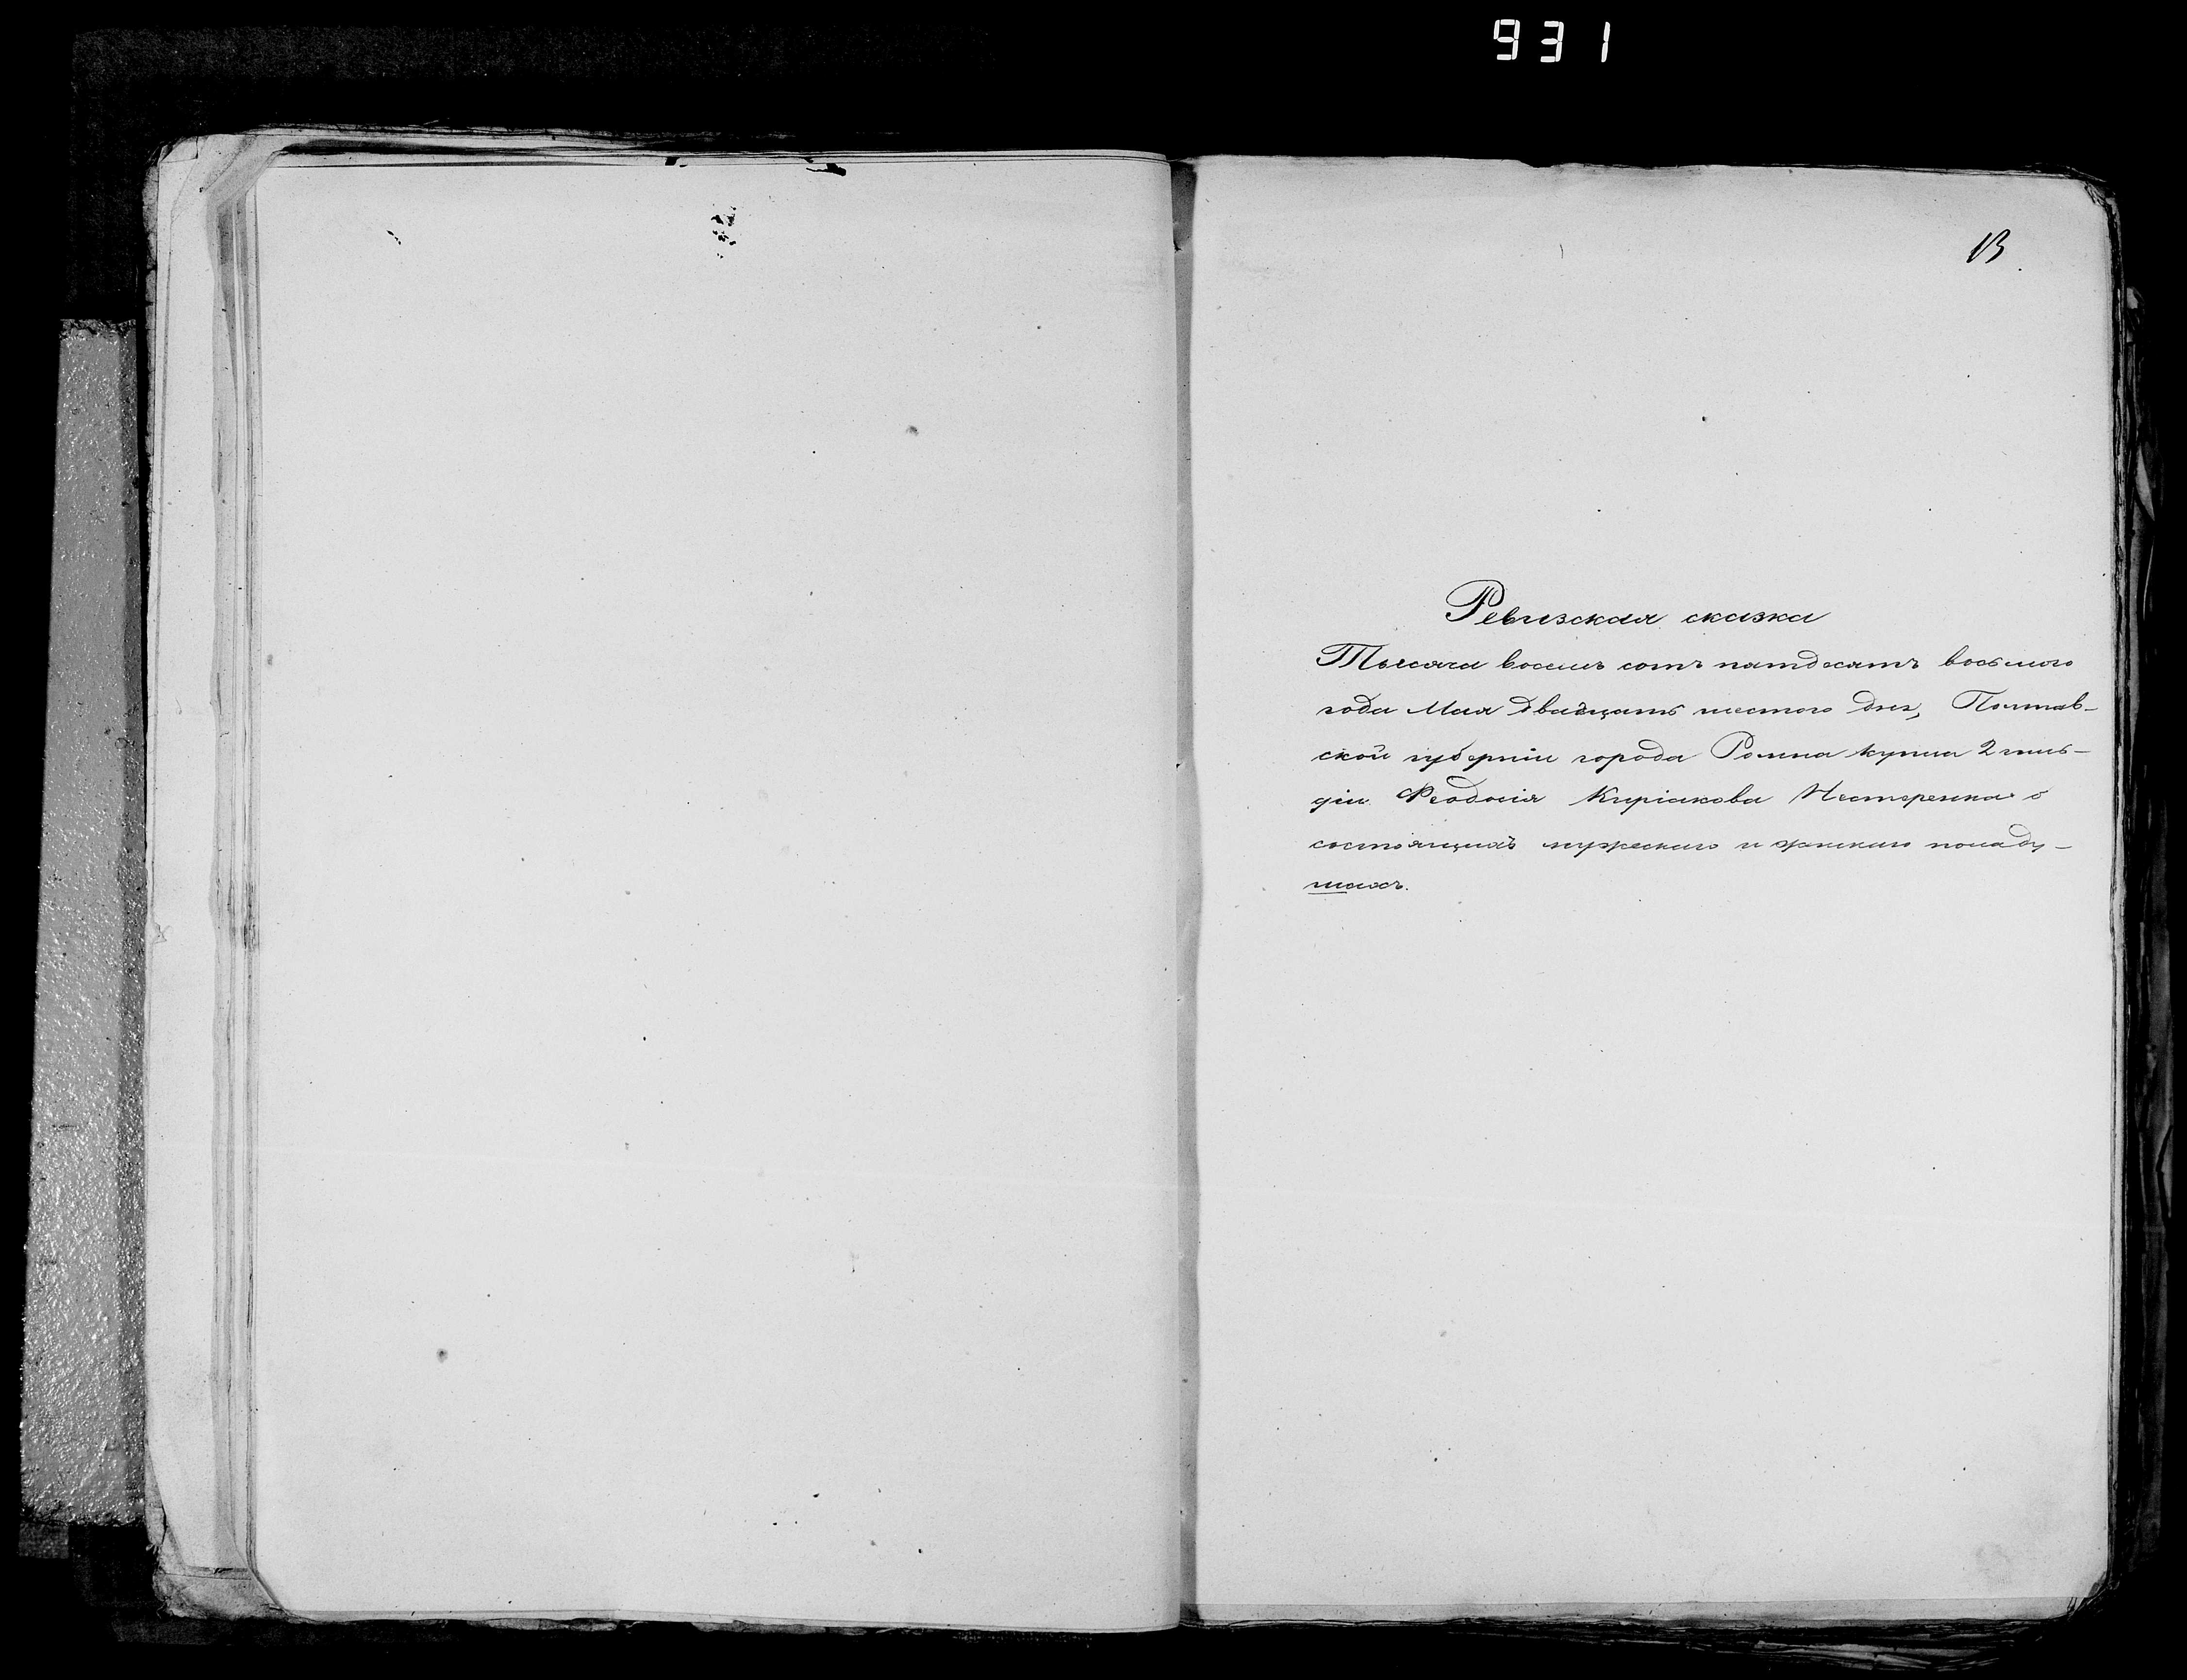 931
13
Ревизская сказка
Тысяча восемь сотъ пятдесятъ восьмого
года Мая двадцать шестого дня, Полтав-
ской губерніи города Ромна купца 2 гиль-
діи Феодосія Киріакова Нестеренка о
состоящихъ мужеского и женского пола ду-
шахъ.